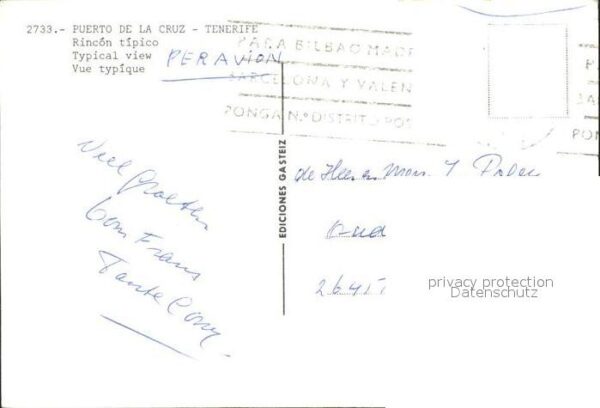 2733.- PUERTO DE LA CRUZ - TENERIFE
Rincón típico
Typical view
Vue typíque
PER AVION
PARA BILBAO MADR
BARCELONA Y VALEN
PONGA N.º DISTRITO POS
EDICIONES GASTEIZ
Veel Groeten
Oom Frans
Tante Cony
de Heer en Mevr.
privacy protection
Datenschutz